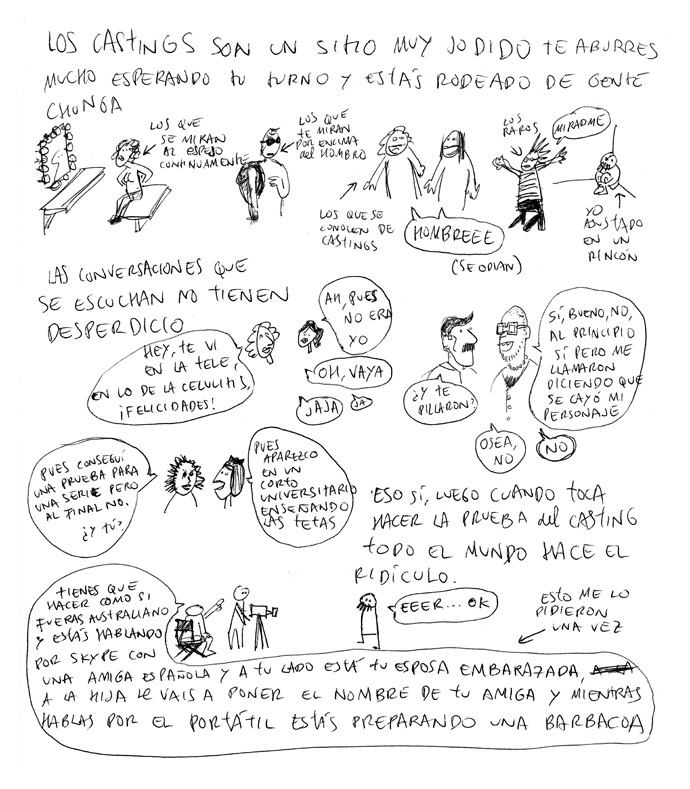 LOS CASTINGS SON UN SITIO MUY JODIDO TE ABURRES
MUCHO ESPERANDO TU TURNO Y ESTÁS RODEADO DE GENTE
CHUNGA
LOS QUE
SE MIRAN
AL ESPEJO
CONTINUAMENTE
LOS QUE
TE MIRAN
POR ENCIMA
del HOMBRO
LOS QUE SE
CONOCEN DE
CASTINGS
HOMBREEE
(SE ODIAN)
LOS
RAROS
MIRADME
YO
ASUSTADO
EN UN
RINCÓN
LAS CONVERSACIONES QUE
SE ESCUCHAN NO TIENEN
DESPERDICIO
HEY, TE VI
EN LA TELE,
EN LO DE LA CELULITIS,
¡FELICIDADES!
AH, PUES
NO ERA
YO
OH, VAYA
JAJA
JA
¿Y TE
PILLARON?
SÍ, BUENO, NO,
AL PRINCIPIO
SÍ PERO ME
LLAMARON
DICIENDO QUE
SE CAYÓ MI
PERSONAJE
OSEA,
NO
NO
PUES CONSEGUÍ
UNA PRUEBA PARA
UNA SERIE PERO
AL FINAL NO.
¿Y TÚ?
PUES
APAREZCO
EN UN
CORTO
UNIVERSITARIO
ENSEÑANDO
LAS TETAS
ESO SÍ, LUEGO CUANDO TOCA
HACER LA PRUEBA del CASTING
TODO EL MUNDO HACE EL
RIDÍCULO.
TIENES QUE
HACER COMO SI
FUERAS AUSTRALIANO
Y ESTÁS HABLANDO
POR SKYPE CON
UNA AMIGA ESPAÑOLA Y A TU LADO ESTÁ TU ESPOSA EMBARAZADA,
A LA HIJA LE VAIS A PONER EL NOMBRE DE TU AMIGA Y MIENTRAS
HABLAS POR EL PORTÁTIL ESTÁS PREPARANDO UNA BARBACOA
EEER... OK
ESTO ME LO
PIDIERON
UNA VEZ